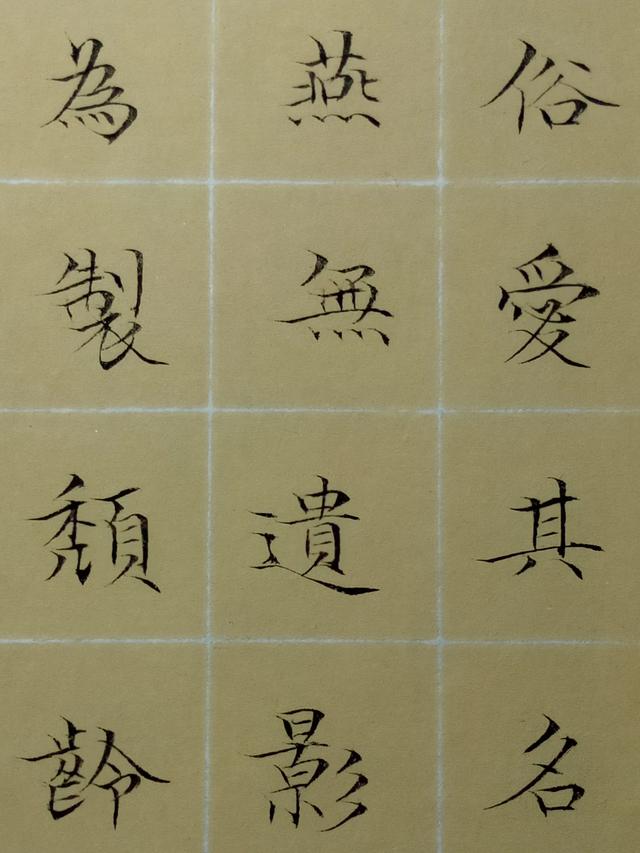 俗愛其名
燕無遺影
為製頹齡